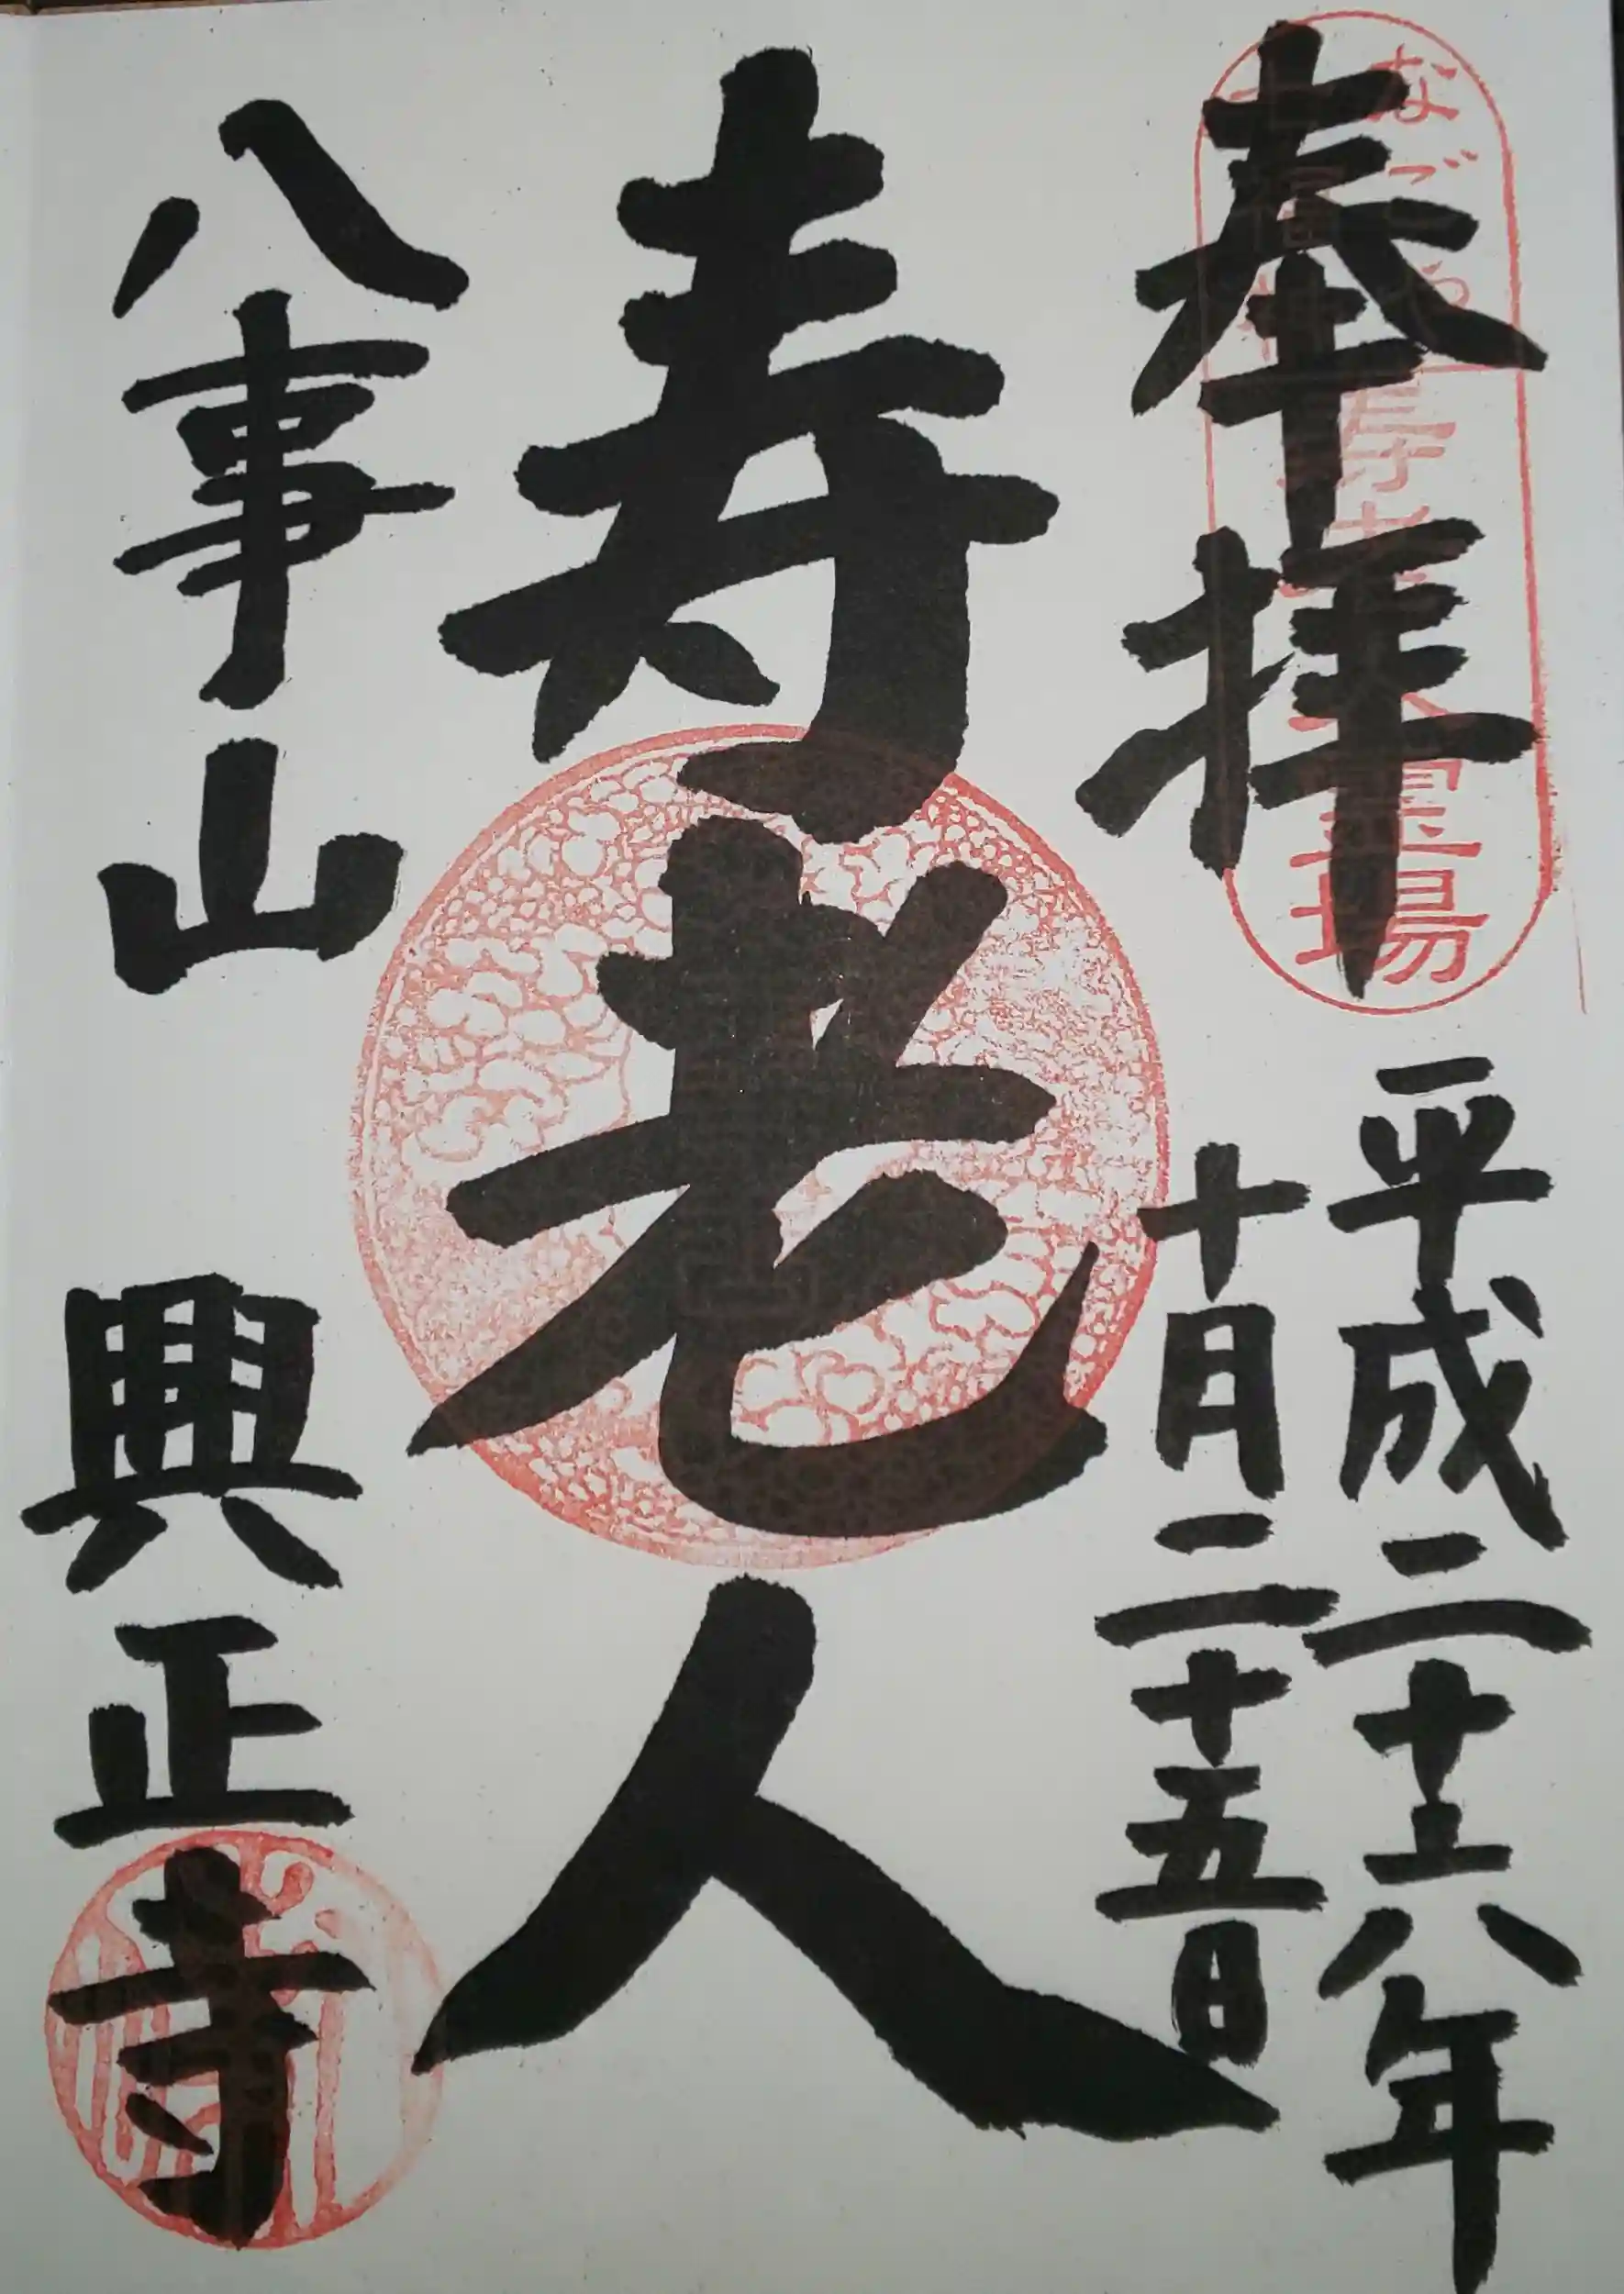 なごや
七福神
寿老人霊場
奉拝
平成二十六年
十月二十五日
寿老人
八事山 興正寺